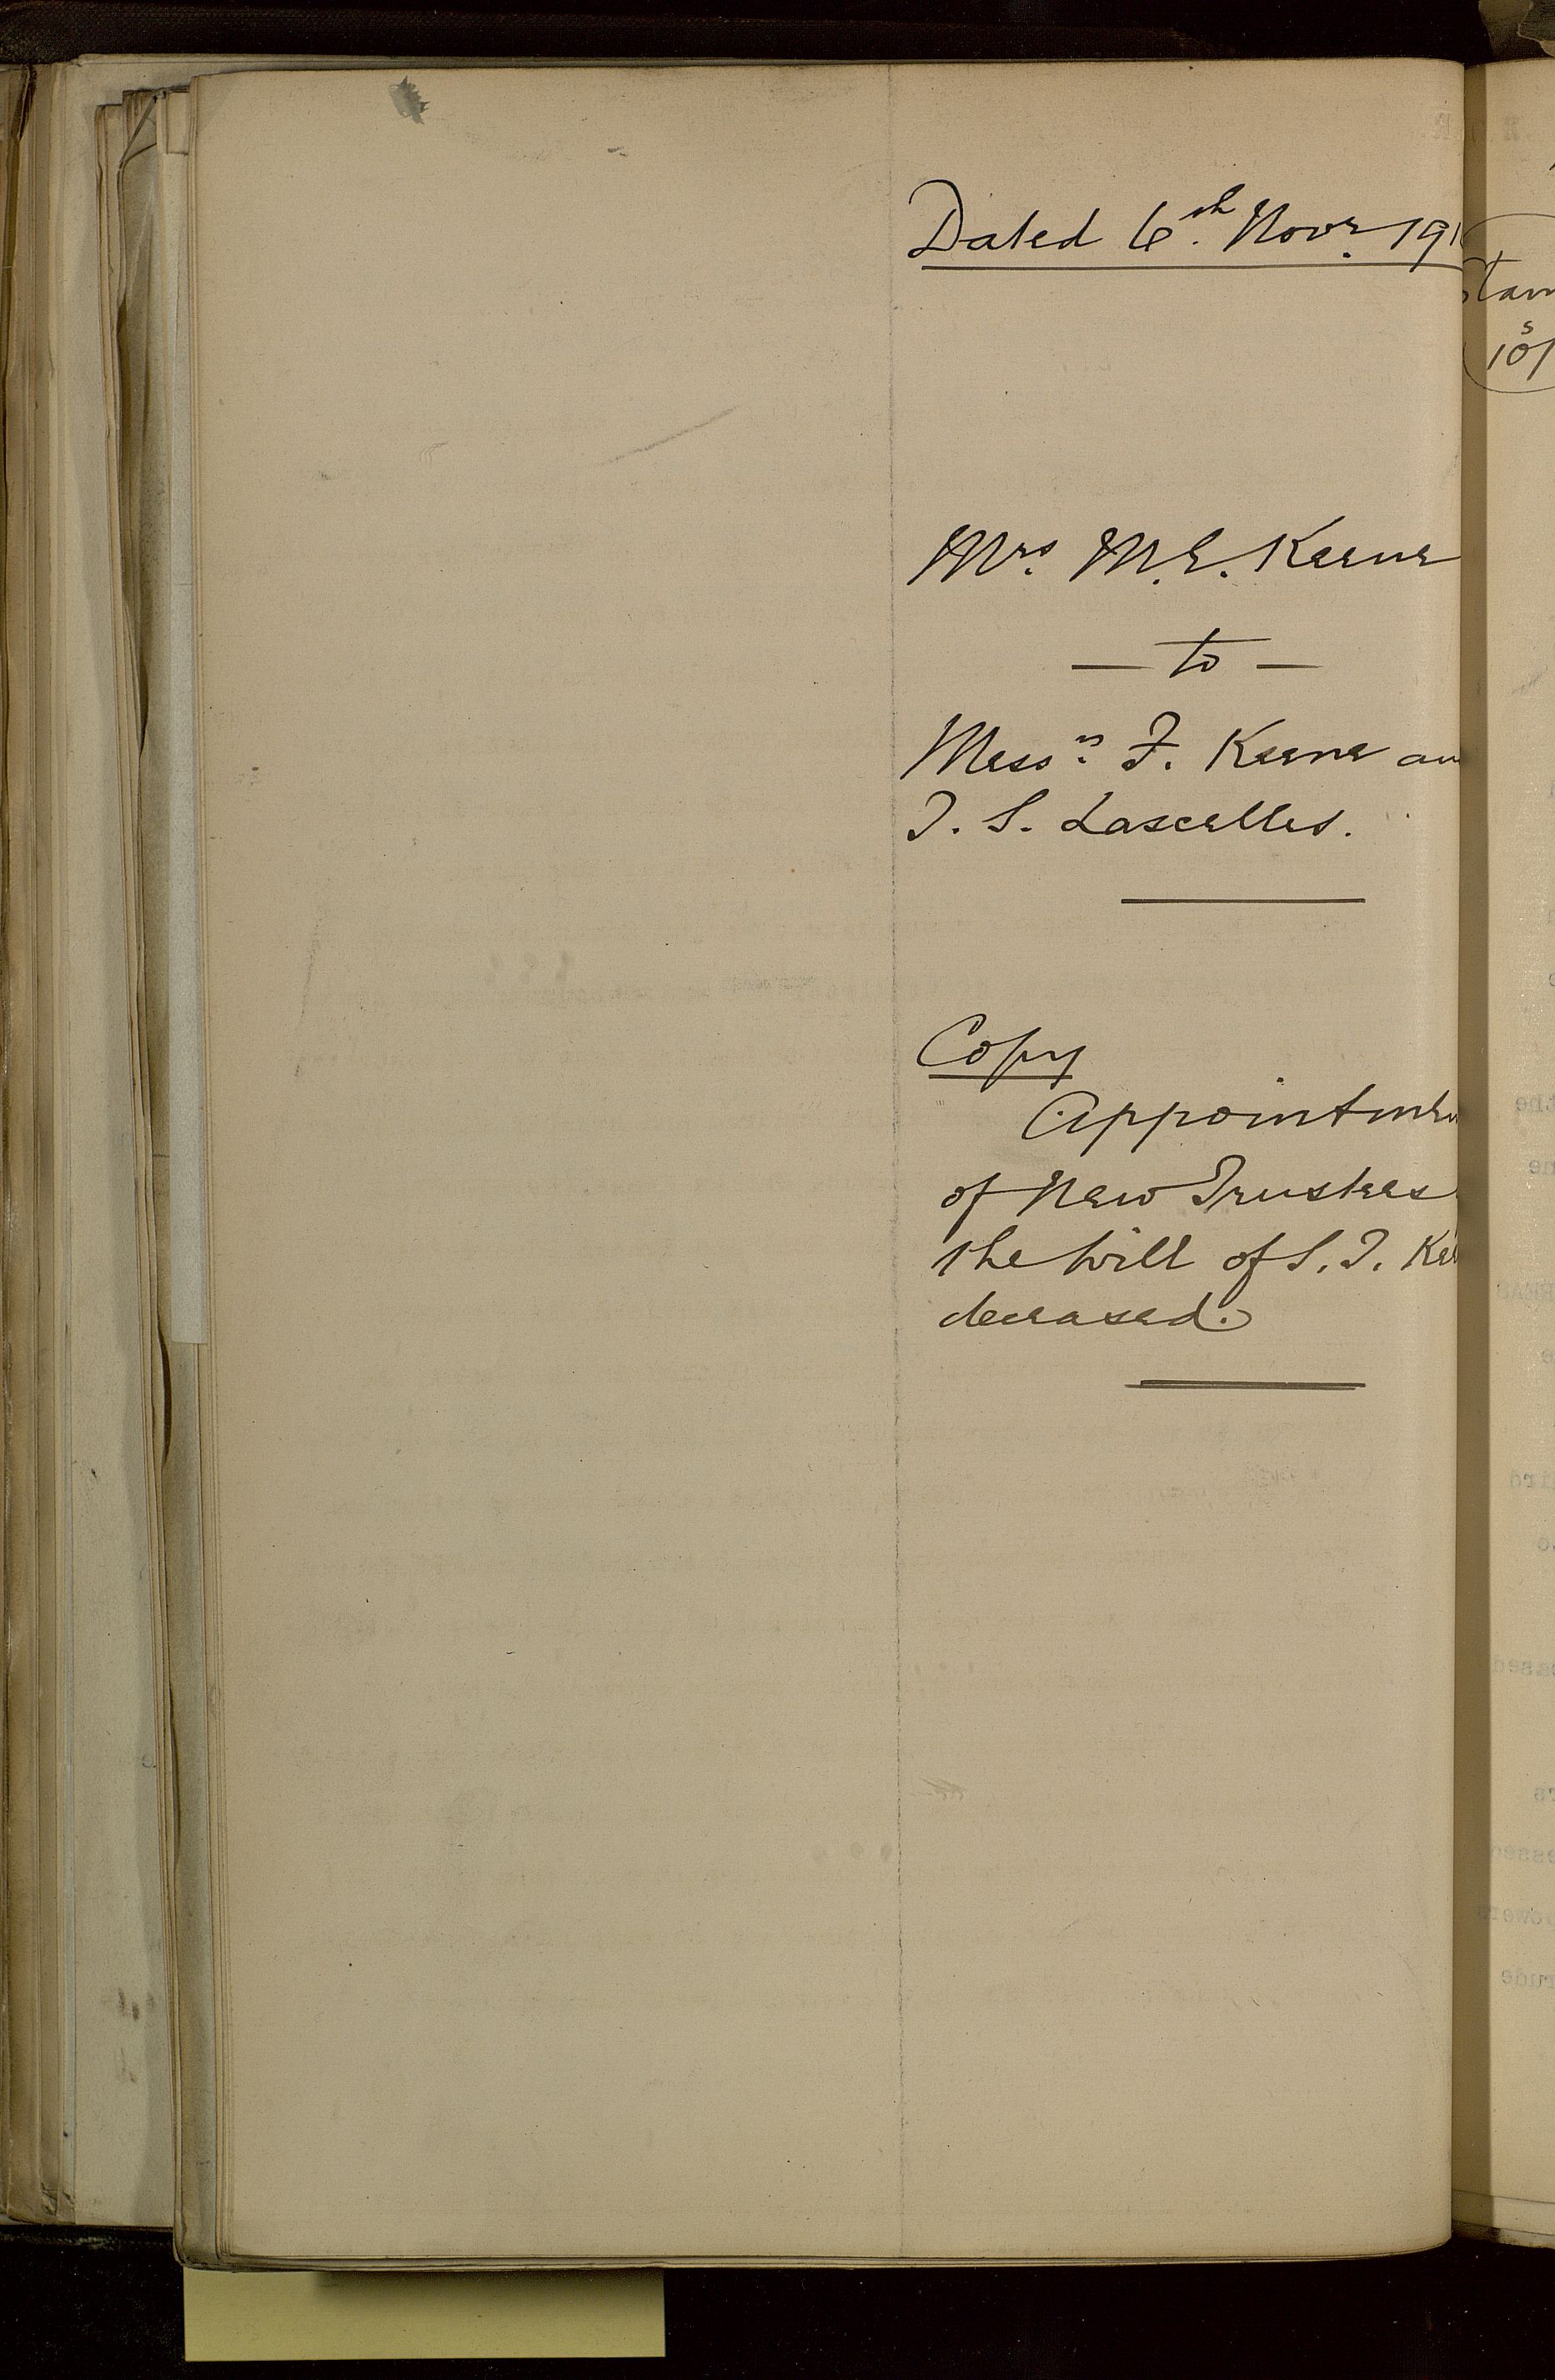 Dated 6th. Novr. 191
Mrs. M.E. Keene
— to —
Messrs. F. Keene an
T. S. Lascelles.
Copy
Appointmen
of New Trustees
the Will of S. T. Ke
deceased.
Stam
s
10/